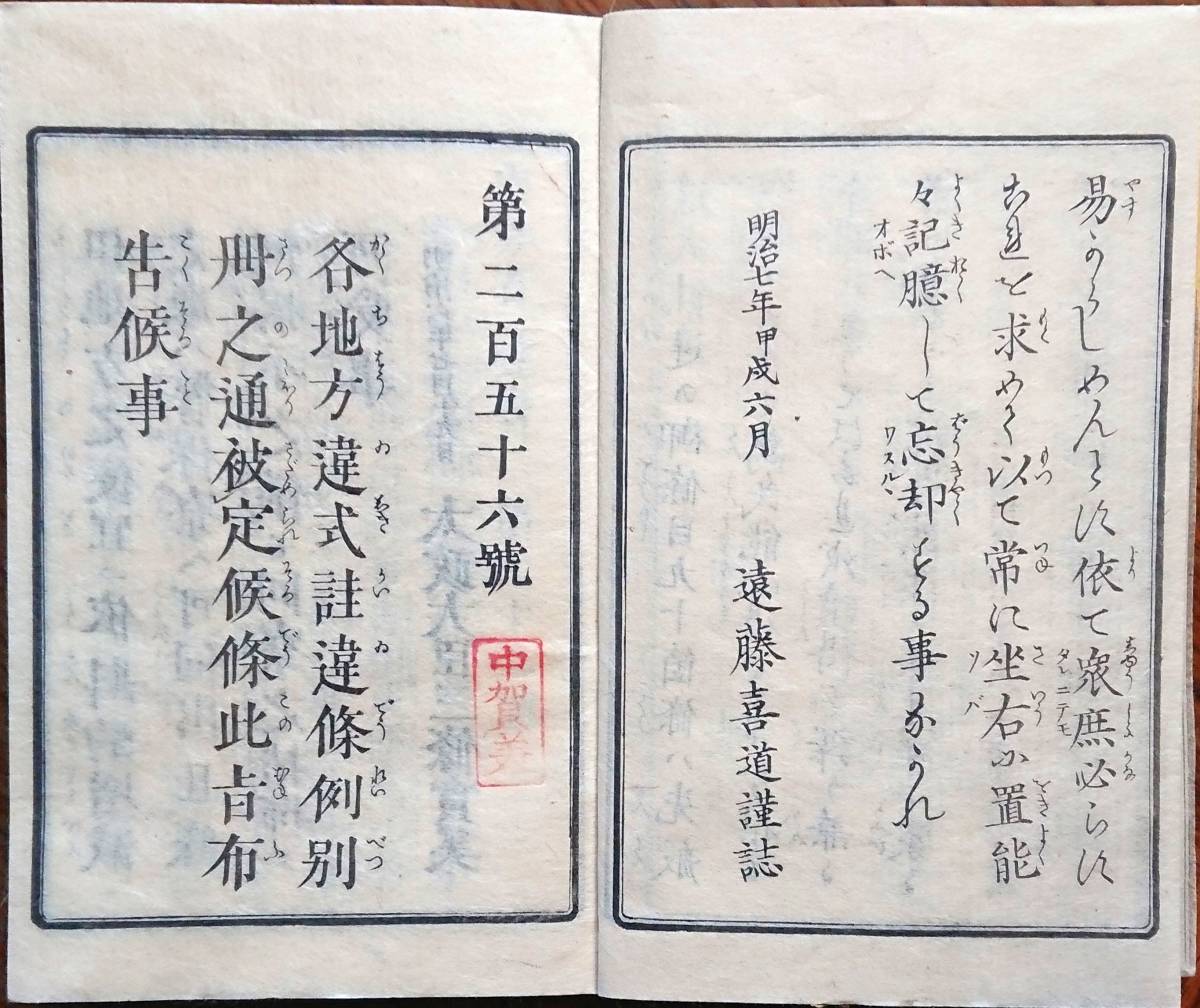 易からしめんとす依て衆庶必らす
これを求めく以て常に坐右に置能
々記臆して忘却する事なかれ
明治七年甲戌六月
遠藤喜道謹誌
第二百五十六號
各地方違式詿違條例別
冊之通被定候條此旨布
告候事
中賀